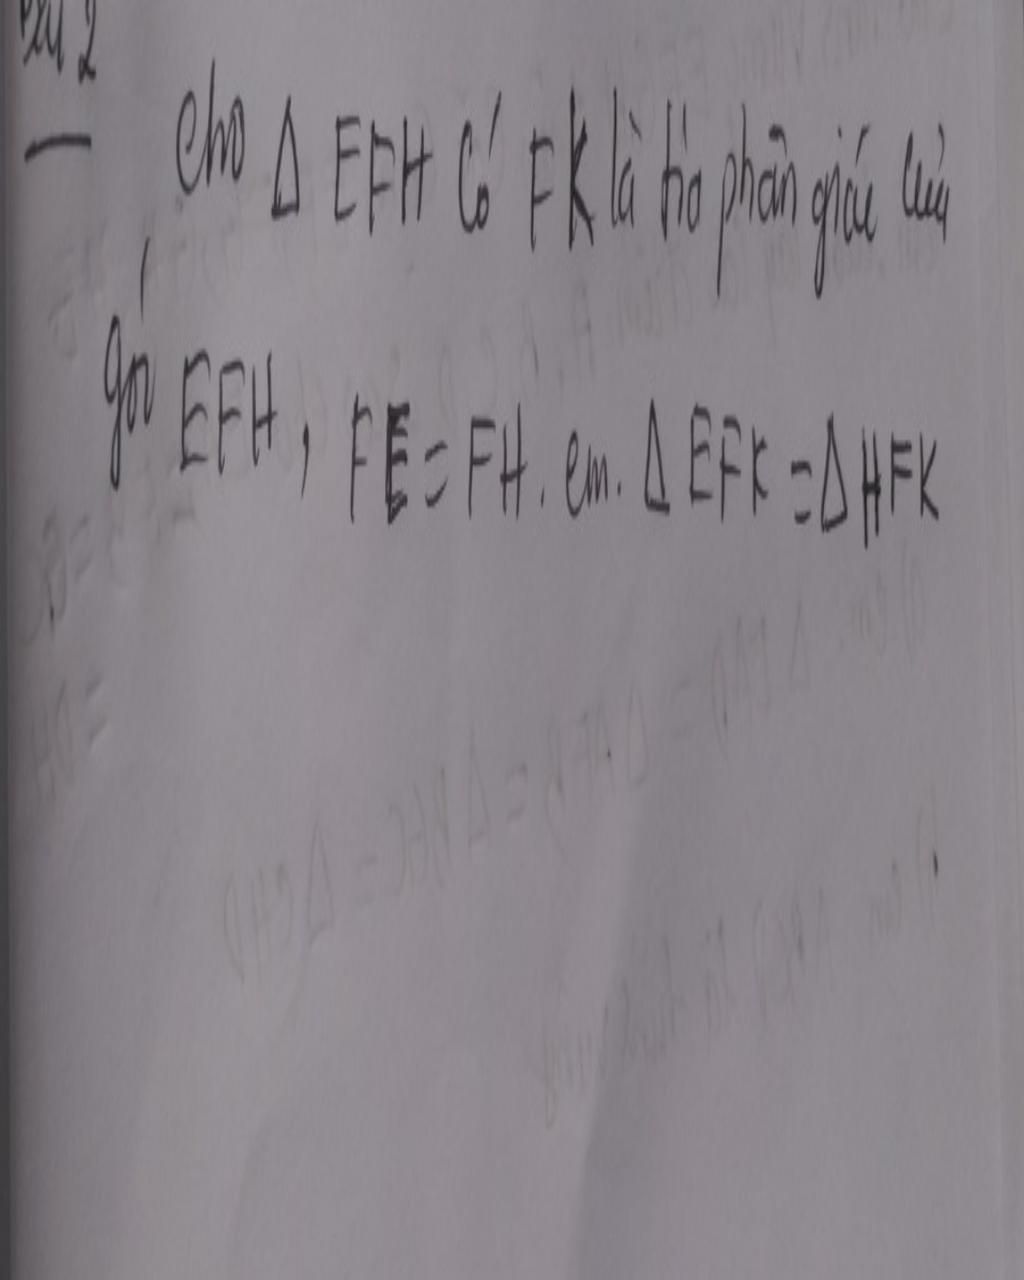 Bài 2
Cho Δ EFH có FK là tia phân giác của
góc EFH, FE = FH. cm. Δ EFK = Δ HFK